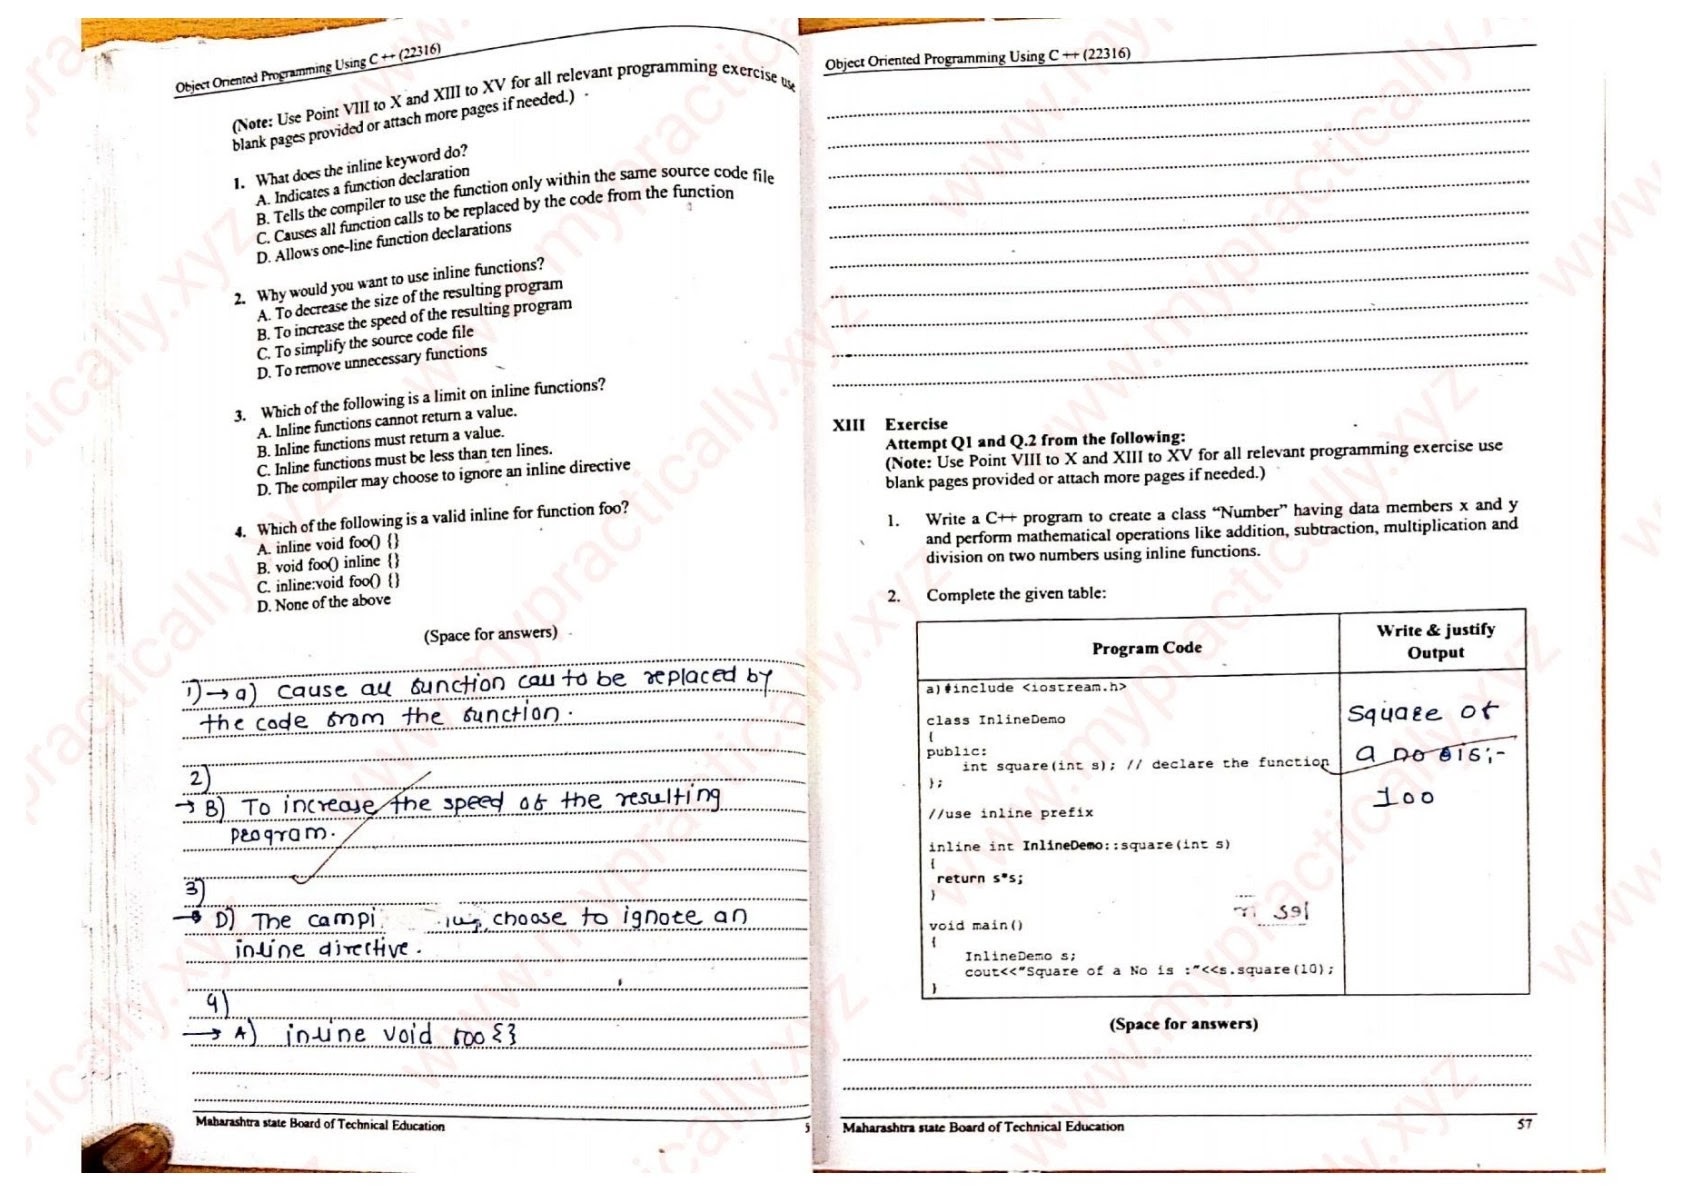 Object Oriented Programming Using C ++ (22316)
(Note: Use Point VIII to X and XIII to XV for all relevant programming exercise use
blank pages provided or attach more pages if needed.)
1. What does the inline keyword do?
A. Indicates a function declaration
B. Tells the compiler to use the function only within the same source code file
C. Causes all function calls to be replaced by the code from the function
D. Allows one-line function declarations
2. Why would you want to use inline functions?
A. To decrease the size of the resulting program
B. To increase the speed of the resulting program
C. To simplify the source code file
D. To remove unnecessary functions
3. Which of the following is a limit on inline functions?
A. Inline functions cannot return a value.
B. Inline functions must return a value.
C. Inline functions must be less than ten lines.
D. The compiler may choose to ignore an inline directive
4. Which of the following is a valid inline for function foo?
A. inline void foo() {}
B. void foo() inline {}
C. inline:void foo() {}
D. None of the above
(Space for answers)
1) → a) cause all function call to be replaced by
the code from the function.
2)
→ B) To increase the speed of the resulting
program.
3)
→ D) The campi choose to ignote an
inline directive.
4)
→ A) inline void foo {}
Maharashtra state Board of Technical Education
5
Object Oriented Programming Using C ++ (22316)
XIII Exercise
Attempt Q1 and Q.2 from the following:
(Note: Use Point VIII to X and XIII to XV for all relevant programming exercise use
blank pages provided or attach more pages if needed.)
1. Write a C++ program to create a class “Number” having data members x and y
and perform mathematical operations like addition, subtraction, multiplication and
division on two numbers using inline functions.
2. Complete the given table:
Program Code
Write & justify
Output
a)#include <iostream.h>
class InlineDemo
{
public:
int square(int s); // declare the function
};
//use inline prefix
inline int InlineDemo::square(int s)
{
return s*s;
}
void main()
{
InlineDemo s;
cout<<"Square of a No is :"<<s.square(10);
}
Square of
a no is:-
100
(Space for answers)
Maharashtra state Board of Technical Education
57
www.mypractically.xyz